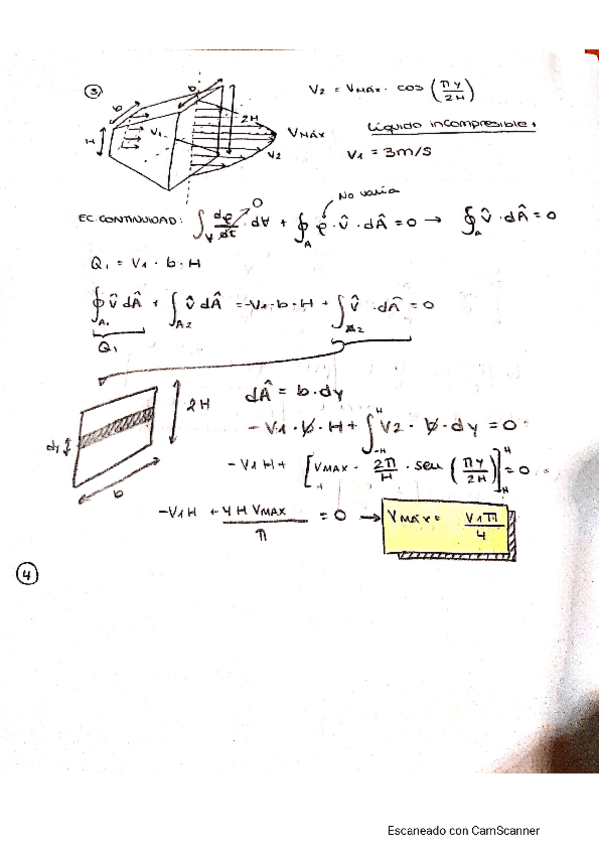 ③
b
b
H
V1
2H
VMÁX
V2
V2 = VMÁX · cos (πy/2H)
Líquido incompresible:
V1 = 3m/s
No varia
EC. CONTINUIDAD: ∫_V dρ/dt · dV + ∮_A ρ · v̂ · dÂ = 0 → ∮_A v̂ · dÂ = 0
0
Q1 = V1 · b · H
∮_A1 v̂ dÂ + ∫_A2 v̂ dÂ = -V1 · b · H + ∫_A2 v̂ · dÂ = 0
Q1
2H
dy
b
dÂ = b · dy
-V1 · b · H + ∫_-H^H V2 · b · dy = 0
-V1H + [VMAX · 2π/H · sen (πy/2H)]_-H^H = 0
-V1H + 4H VMAX/π = 0 → VMÁX = V1π/4
④
Escaneado con CamScanner